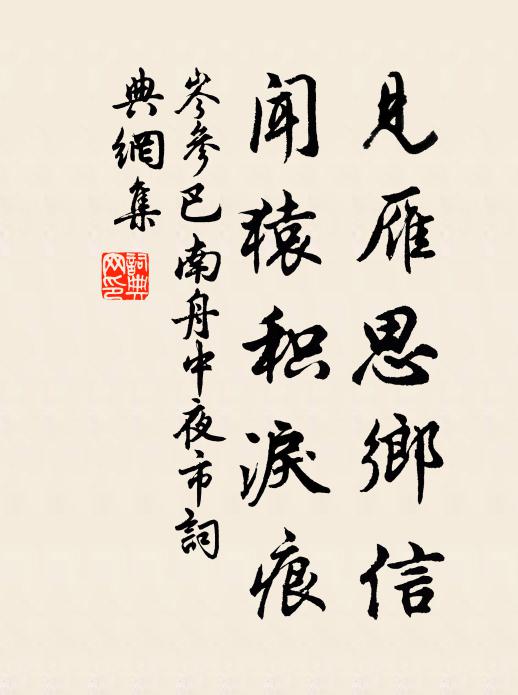 見雁思鄉信
聞猿积淚痕
岑參巴南舟中夜市詞
典網集
詞典网印